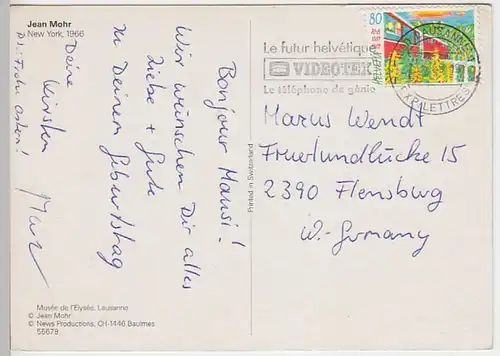 Jean Mohr
New York, 1966
Bonjour Mausi!
Wir wünschen Dir alles
Liebe + Gute
zu Deinem Geburtstag
Deine
Kirsten
Marc
Frohe Ostern!
Musée de l'Elysée, Lausanne
© Jean Mohr
© News Productions, CH-1446 Baulmes
55679
Printed in Switzerland
Le futur helvétique
VIDEOTEX
Le téléphone de génie
80
HELVETIA
LAUSANNE
EXP. LETTRES
Marcus Wendt
Fruerlundlücke 15
2390 Flensburg
W.-Germany